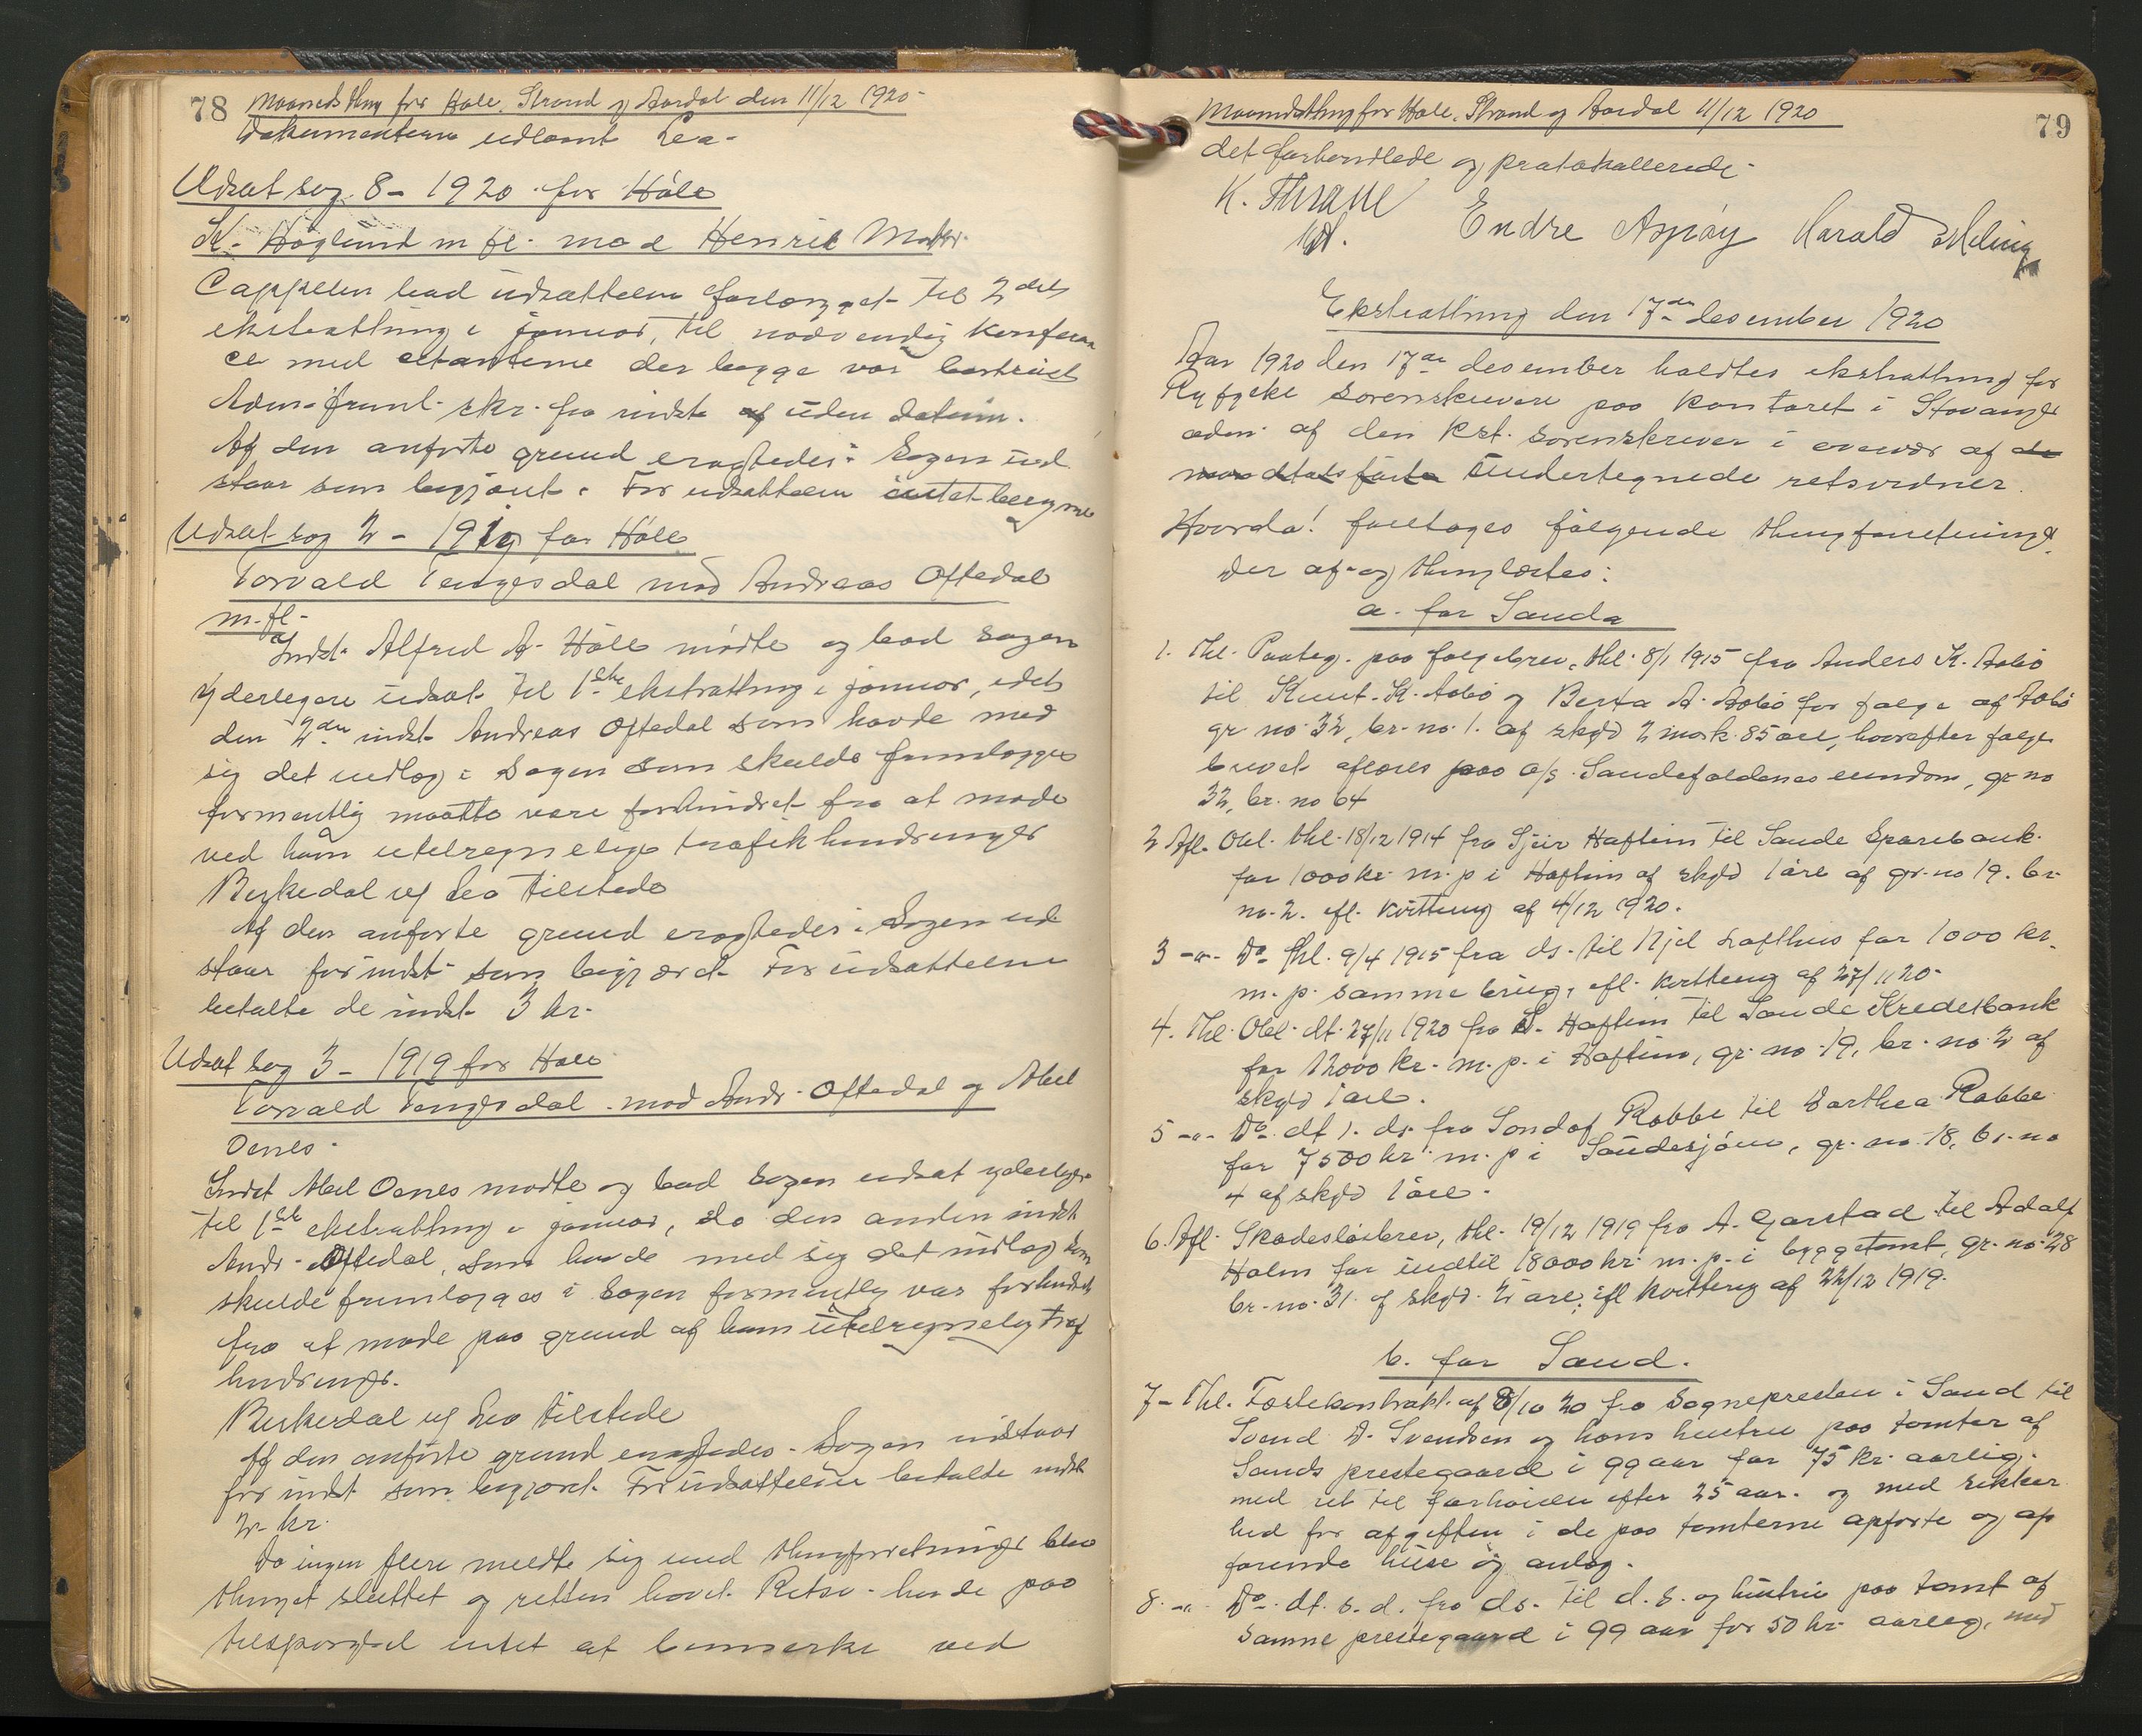 78 Maanedsthing for Høle, Strand og Aardal den 11/12 1920
Dokumenterne utlaant Lea.
Udsat sag 8 - 1920 for Høle
K. Höglund m fl. mod Henrik Møller
Cappelen bad udsættelsen forlænget til 2det
ekstrathing i januar, til nødvendig konferan
ce med citanterne der begge var bortreist
Adm. freml. skr. fra indst af uden datum.
Af den anførte grund eragtedes: Sagen ud
staar som begjært. For udsættelsen intet beregnet
Udsat sag 2 - 1919 for Høle
Torvald Tengesdal mod Andreas Oftedal
m. fl.
Indst. Alfred A. Høle mødte og bad sagen
yderlegere udsat til 1ste ekstrathing i januar, idet
den 2den indst. Andreas Oftedal som havde med
sig det indlæg i sagen som skulde fremlægges
formentlig maatte være forhindret fra at møde
ved ham uberegnelige trafikhindringer
Birkedal vf Lea tilstede
Af den anførte grund eragtedes: Sagen ud
staar for indst som begjært. For udsættelsen
betalte de indst. 3 kr.
Udsat sag 3 - 1919 for Høle
Torvald Tengesdal mod Andr. Oftedal og Abel
Oenes.
Indst Abel Oenes mødte og bad sagen udsat yderligere
til 1ste ekstrathing i januar, da den anden indst
Andr. Oftedal, som havde med sig det indlæg som
skulde fremlægges i sagen formentlig var forhindret
fra at møde paa grund af ham uberegnelig traf
hindringer.
Birkedal vf Lea tilstede
Af den anførte grund eragtedes: Sagen udstaar
for indst som begjært. For udsættelsen betalte indst
2 kr.
Da ingen flere meldte sig med thingforretninger blev
thinget sluttet og retten hævet. Retsv. havde paa
tilspørgsel intet at bemerke ved
Maanedsthing for Høle, Strand og Aardal 11/12 1920
79
det forhandlede og protokollerede.
K. Thrane
Kst.
Endre Aspøy Harald Meling
Ekstrathing den 17de desember 1920
Aar 1920 den 17de desember holdtes ekstrathing for
Ryfylke sorenskriveri paa kontoret i Stavanger
adm. af den kst. sorenskriver i overvær af de
undertegnede retsvidner.
Hvorda! foretages følgende thingforretninger
der af- og thinglæstes:
a. for Sauda
1. Thl. Paateg. paa følgebrev, thl. 8/1 1915 fra Anders K. Aabø
til Knut K. Aabø og Berta A. Aabø for følge af Aabø
gr. no 32, br. no. 1. af skyld 2 mark 85 øre, hvorefter følge
brevet aflæses paa A/s. Saudefaldenes eiendom, gr. no
32, br. no 64
2 Afl. Obl. thl. 18/12 1914 fra Sjur Haftun til Saude Sparebank
for 1000 kr. m. p i Haftun af skyld 1 øre af gr. no 19. br.
no. 2. efl. kvittering af 4/12 1920.
3 -"- Do thl. 9/4 1915 fra ds. til Njel Lofthus for 1000 kr.
m. p. samme brug, efl. kvittering af 27/11 20.
4. Thl. Obl. dt. 27/11 1920 fra S. Haftun til Saude Kreditbank
for 12000 kr. m. p. i Haftun, gr. no 19, br. no. 2 af
skyld 1 øre.
5 -"- Do dt 1. ds. fra Sondof Rabbe til Dorthea Rabbe
for 7500 kr. m. p i Saudesjøen, gr. no. 18, br. no
4 af skyld 1 øre.
6. Afl. Skadesløsbrev, thl. 19/12 1919 fra A. Garstad til Adolf
Holm for indtil 18000 kr. m. p. i byggetomt, gr. no. 28
br. no. 31. af skyld 2 øre, ifl kvittering af 22/12 1919.
b. for Sand.
7 - Thl. Festekontrakt af 8/10 20 fra Sognepresten i Sand til
Svend D. Svendsen og hans hustru paa tomter af
Sands prestegaard i 99 aar for 75 kr. aarlig.
med ret til forhøielse efter 25 aar. og med sikker
hed for afgiften i de paa tomterne opførte og op
førende huse og anlæg.
8. -"- Do. dt. s. d. fra ds. til d. s. og hustru paa tomt af
Samme prestegaard i 99 aar for 50 kr. aarleg, med